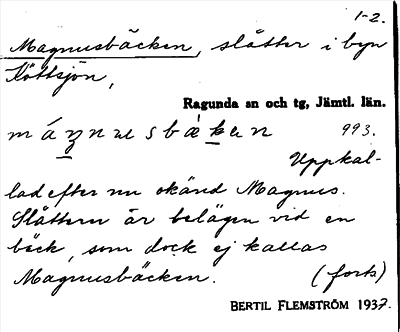 1-2.
Magnusbäcken, slåtter i byn
Köttsjön,
Ragunda sn och tg, Jämtl. län.
máŋnusbäkan 993.
Uppkal-
lad efter nu okänd Magnus.
Slåttern är belägen vid en
bäck, som dock ej kallas
Magnusbäcken. (forts)
BERTIL FLEMSTRÖM 1937.